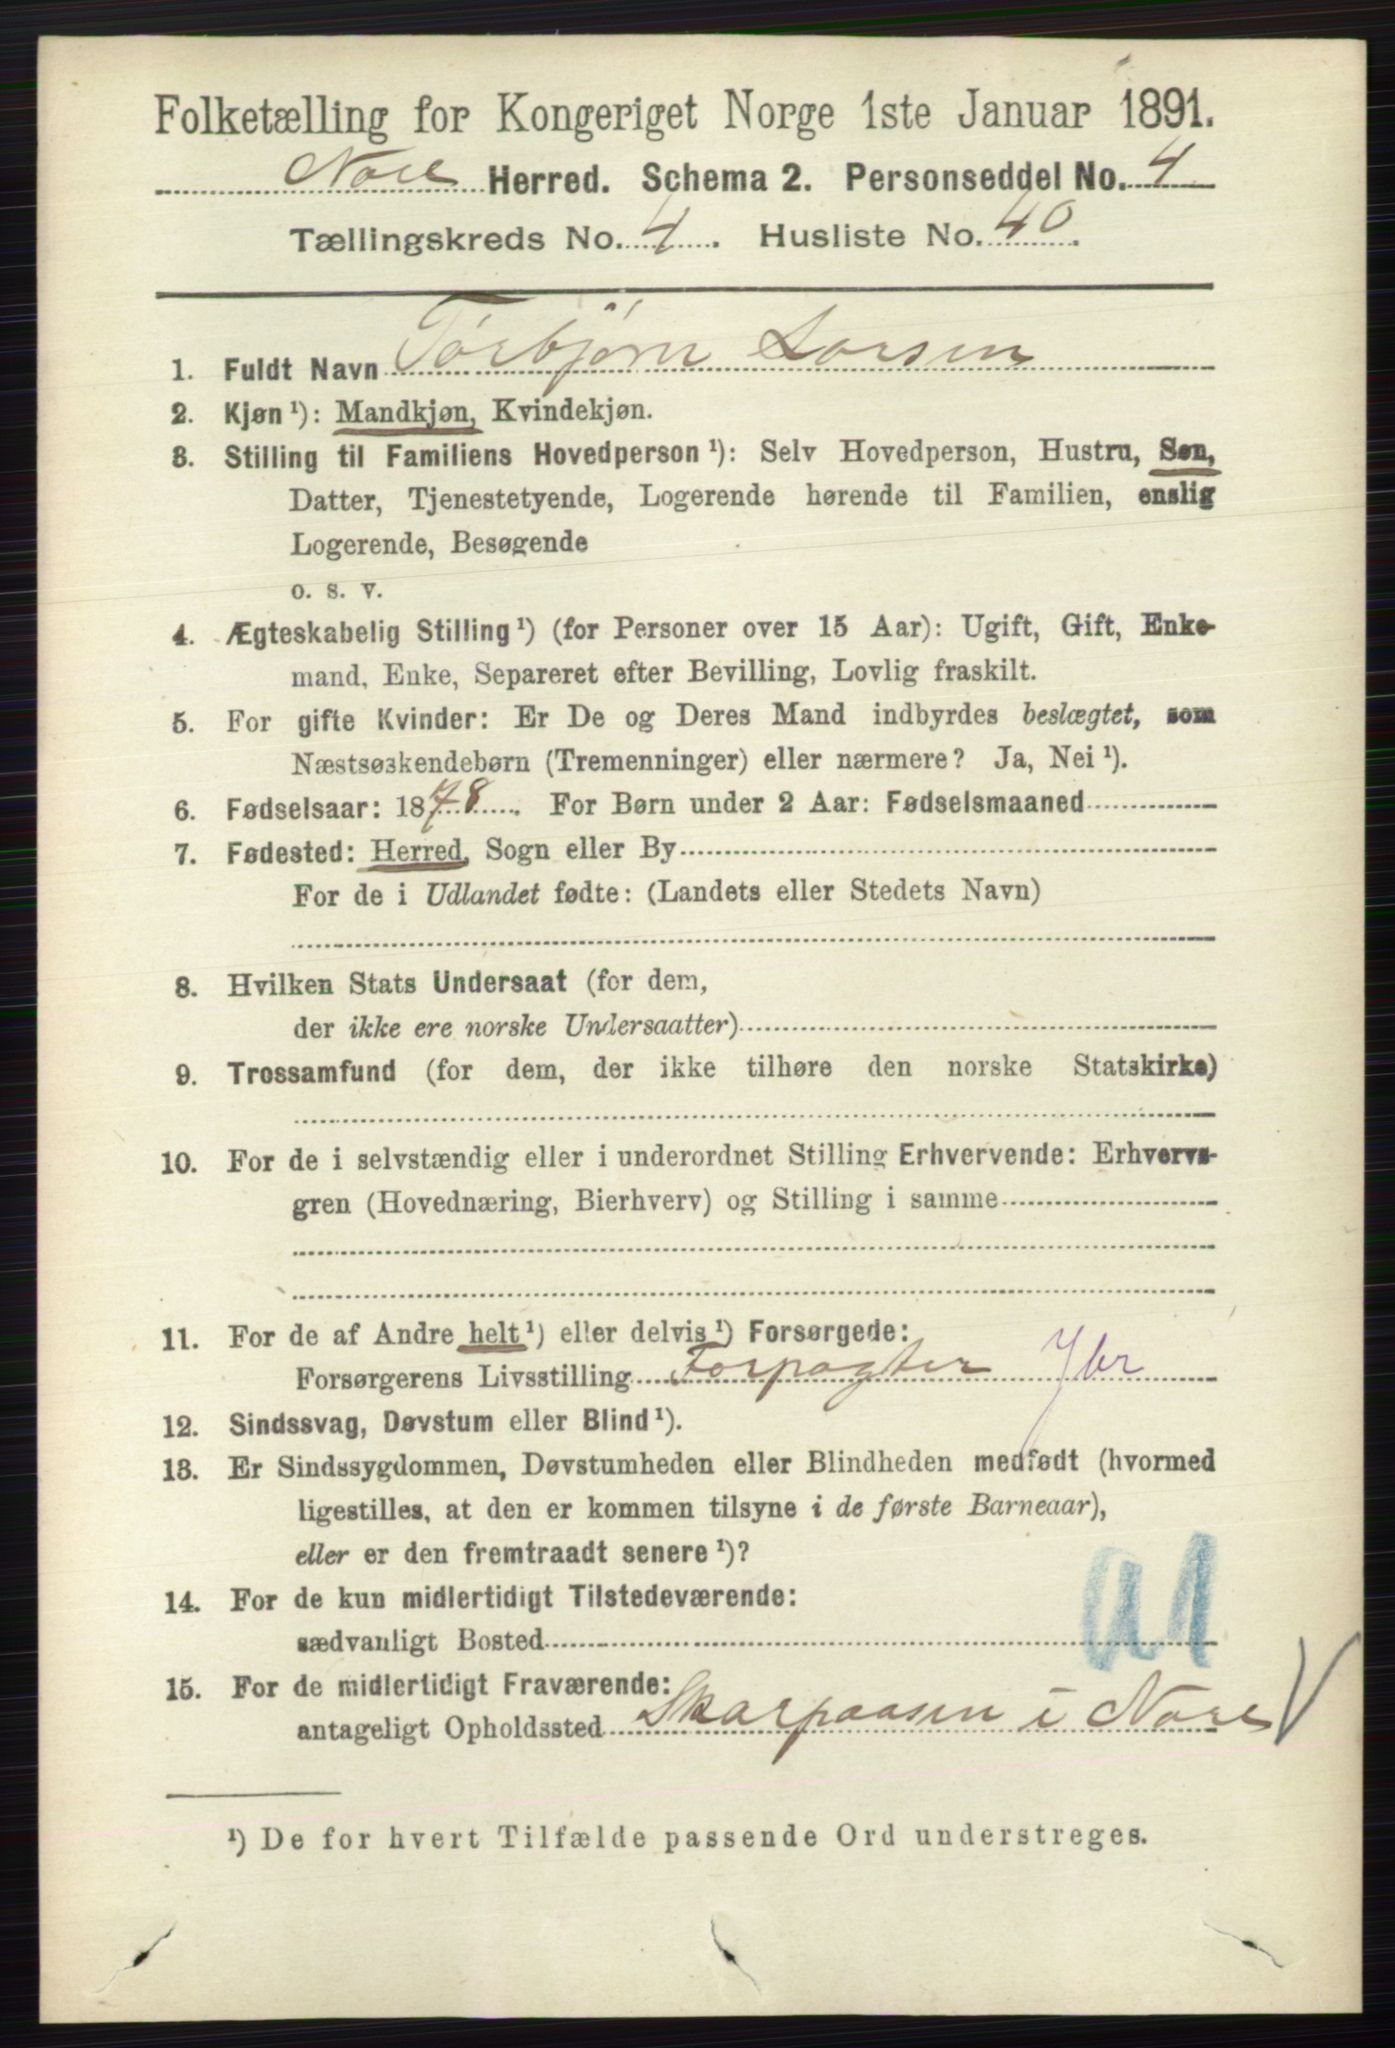 Folketælling for Kongeriget Norge 1ste Januar 1891.
Nore Herred. Schema 2. Personseddel No. 4
Tællingskreds No. 4. Husliste No. 40.
1. Fuldt Navn Torbjørn Larsen
2. Kjøn ¹): Mandkjøn, Kvindekjøn.
3. Stilling til Familiens Hovedperson ¹): Selv Hovedperson, Hustru, Søn,
Datter, Tjenestetyende, Logerende hørende til Familien, enslig
Logerende, Besøgende
o. s. v.
4. Ægteskabelig Stilling ¹) (for Personer over 15 Aar): Ugift, Gift, Enke-
mand, Enke, Separeret efter Bevilling, Lovlig fraskilt.
5. For gifte Kvinder: Er De og Deres Mand indbyrdes beslægtet, som
Næstsøskendebørn (Tremenninger) eller nærmere? Ja, Nei ¹).
6. Fødselsaar: 1878. For Børn under 2 Aar: Fødselsmaaned
7. Fødested: Herred, Sogn eller By
For de i Udlandet fødte: (Landets eller Stedets Navn)
8. Hvilken Stats Undersaat (for dem,
der ikke ere norske Undersaatter)
9. Trossamfund (for dem, der ikke tilhøre den norske Statskirke)
10. For de i selvstændig eller i underordnet Stilling Erhvervende: Erhvervs-
gren (Hovednæring, Bierhverv) og Stilling i samme
11. For de af Andre helt ¹) eller delvis ¹) Forsørgede:
Forsørgerens Livsstilling Forpagter Jbr
12. Sindssvag, Døvstum eller Blind ¹).
13. Er Sindssygdommen, Døvstumheden eller Blindheden medfødt (hvormed
ligestilles, at den er kommen tilsyne i de første Barneaar),
eller er den fremtraadt senere ¹)?
14. For de kun midlertidigt Tilstedeværende:
sædvanligt Bosted
15. For de midlertidigt Fraværende:
antageligt Opholdssted Skarpaasen i Nore V
¹) De for hvert Tilfælde passende Ord understreges.